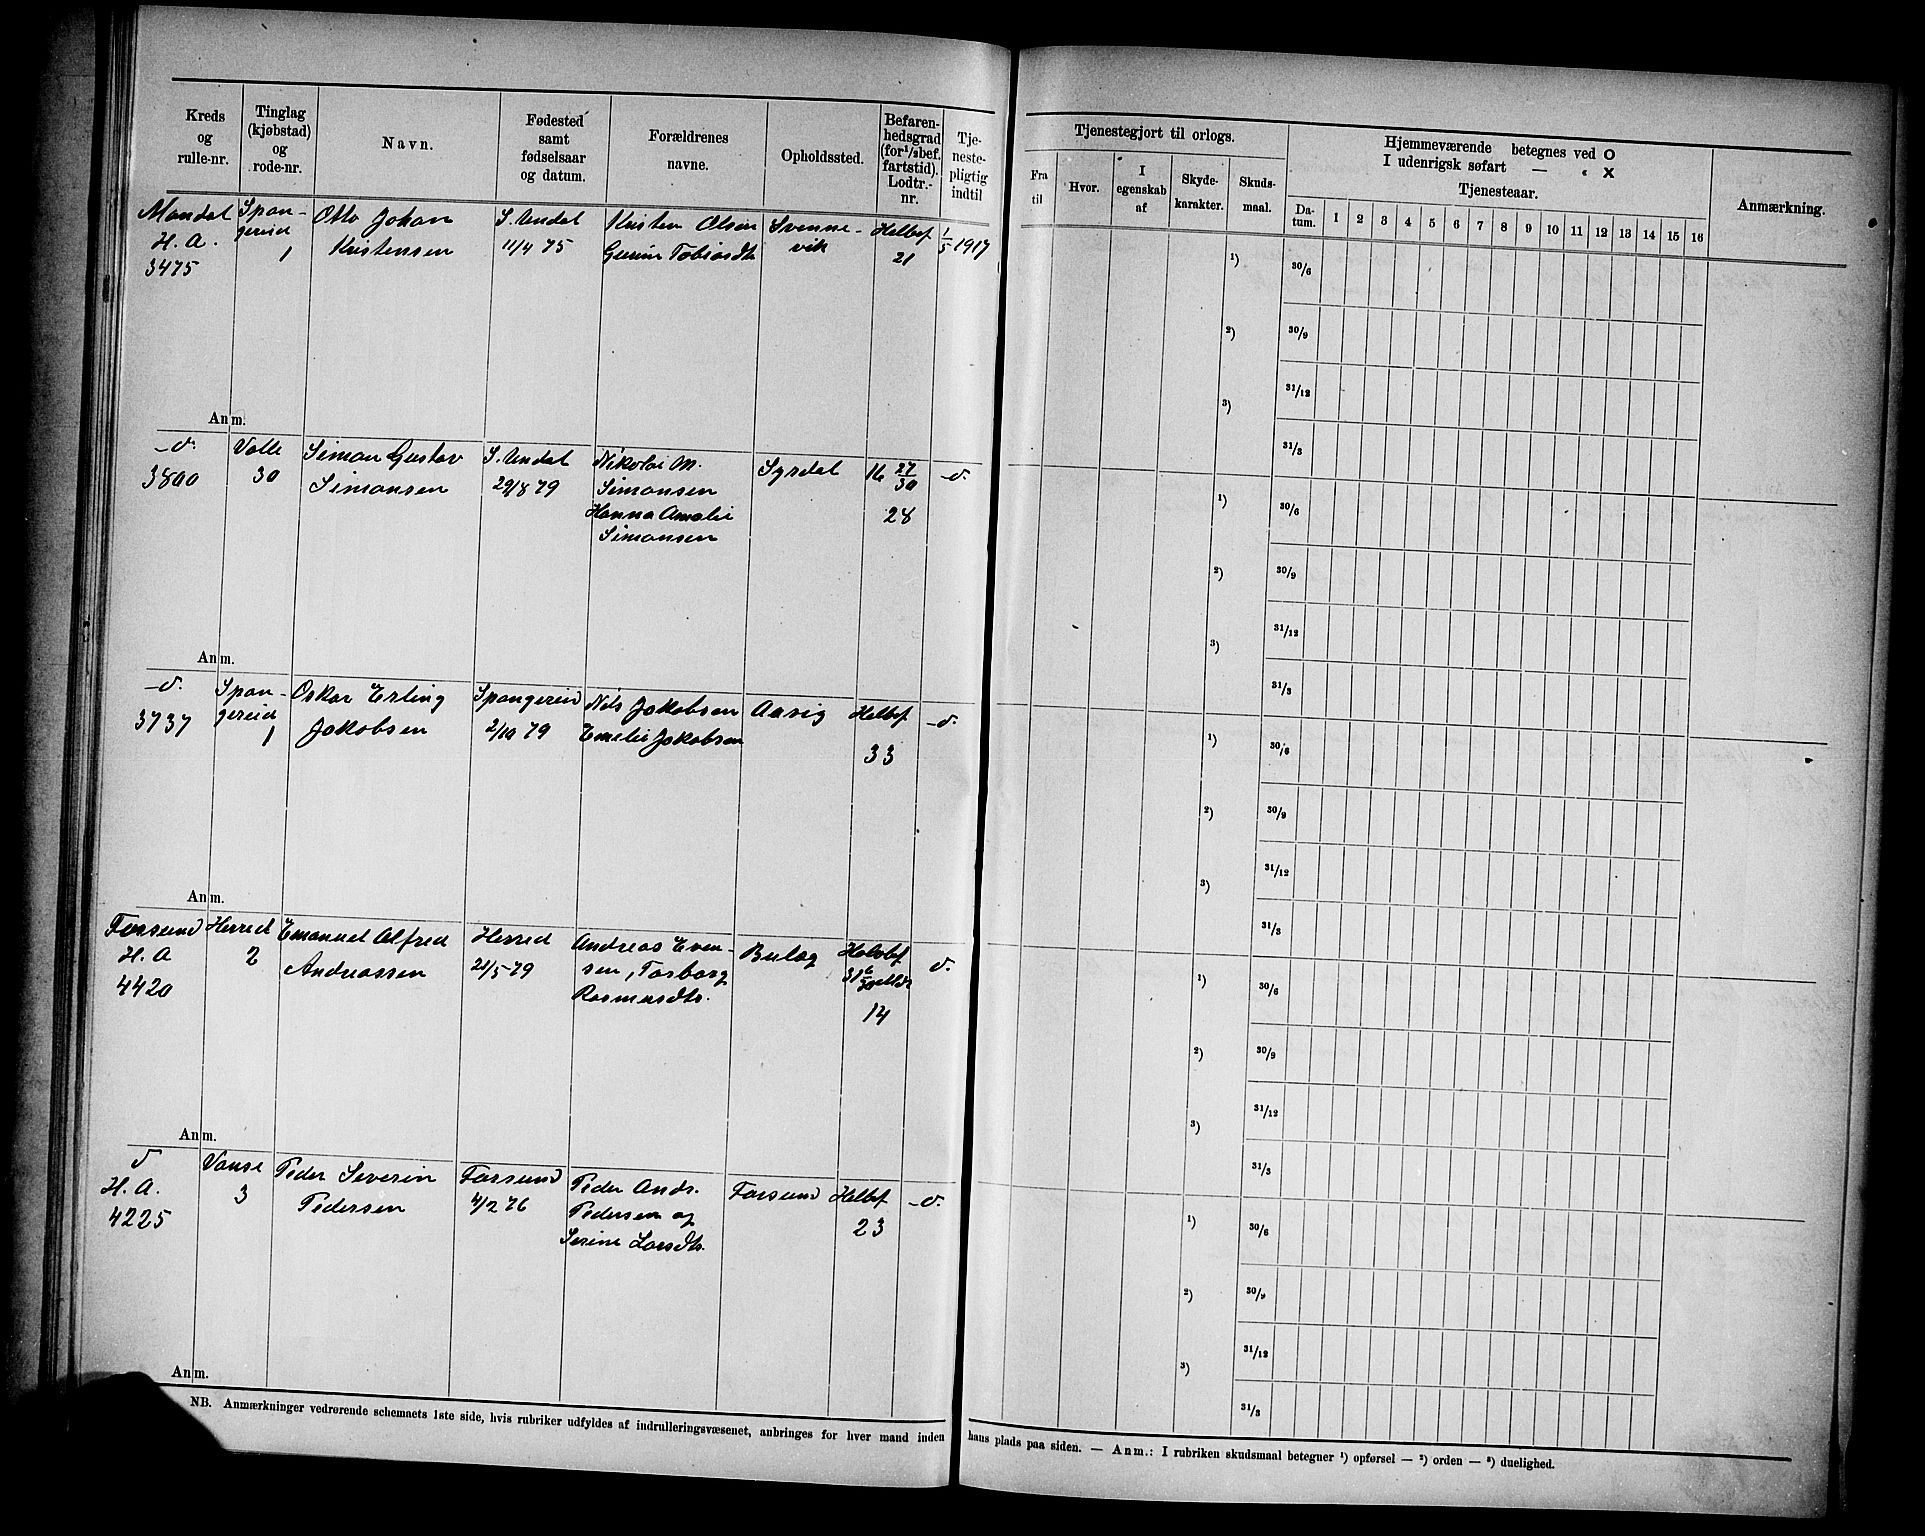 Kreds
og
rulle-nr.
Tinglag
(kjøbstad)
og
rode-nr.
Navn.
Fødested
samt
fødselsaar
og datum.
Forældrenes
navne.
Opholdssted.
Befaren-
hedsgrad
(for 1/2bef.
fartstid).
Lodtr.-
nr.
Tje-
neste-
pligtig
indtil
Tjenestegjort til orlogs.
Fra
til
Hvor.
I
egenskab
af
Skyde-
karakter.
Skuds-
maal.
Hjemmeværende betegnes ved O
I udenrigsk søfart — „ X
Tjenesteaar.
Da-
tum.
1 2 3 4 5 6 7 8 9 10 11 12 13 14 15 16
Anmærkning.
Mandal
H. A.
3475
Span-
gereid
1
Otto Johan
Kristensen
S. Undal
11/4 75
Kristen Olsen
Gunine Tobiasdtr
Svenne-
vik
Helbef
21
1/5 1917
1)
2)
3)
30/6
30/9
31/12
31/3
Anm.
-"-
3800
Valle
30
Simon Gustav
Simonsen
S. Undal
29/8 79
Nikolai M.
Simonsen
Hanna Amalie
Simonsen
Syrdal
16 27/30
28
-"-
1)
2)
3)
30/6
30/9
31/12
31/3
Anm.
-"-
3737
Span-
gereid
1
Oskar Erling
Jakobsen
Spangereid
2/10 79
Nils Jakobsen
Emelie Jakobsen
Aavig
Helbef
33
-"-
1)
2)
3)
30/6
30/9
31/12
31/3
Anm.
Farsund
H. A
4420
Herred
2
Emanuel Alfred
Andreassen
Herred
21/5 79
Andreas Even-
sen, Torborg
Rasmusdtr.
Bulæg
Halvbef
14
"
1)
2)
3)
30/6
30/9
31/12
31/3
Anm.
"
H. A.
4225
Vanse
3
Peder Severin
Pedersen
Farsund
4/2 76
Peder Andr.
Pedersen og
Serine Larsdtr.
Farsund
Helbef
23
-"-
1)
2)
3)
30/6
30/9
31/12
31/3
Anm.
NB. Anmærkninger vedrørende schemaets 1ste side, hvis rubriker udfyldes af indrulleringsvæsenet, anbringes for hver mand inden hans plads paa siden. — Anm.: I rubriken skudsmaal betegner ¹) opførsel — ²) orden — ³) duelighed.